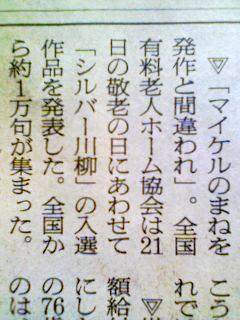 ▽「マイケルのまねを
発作と間違われ」。全国
有料老人ホーム協会は21
日の敬老の日にあわせて
「シルバー川柳」の入選
作品を発表した。全国か
ら約1万句が集まった。
こう
れで
▽
額給
にし
の76
のは